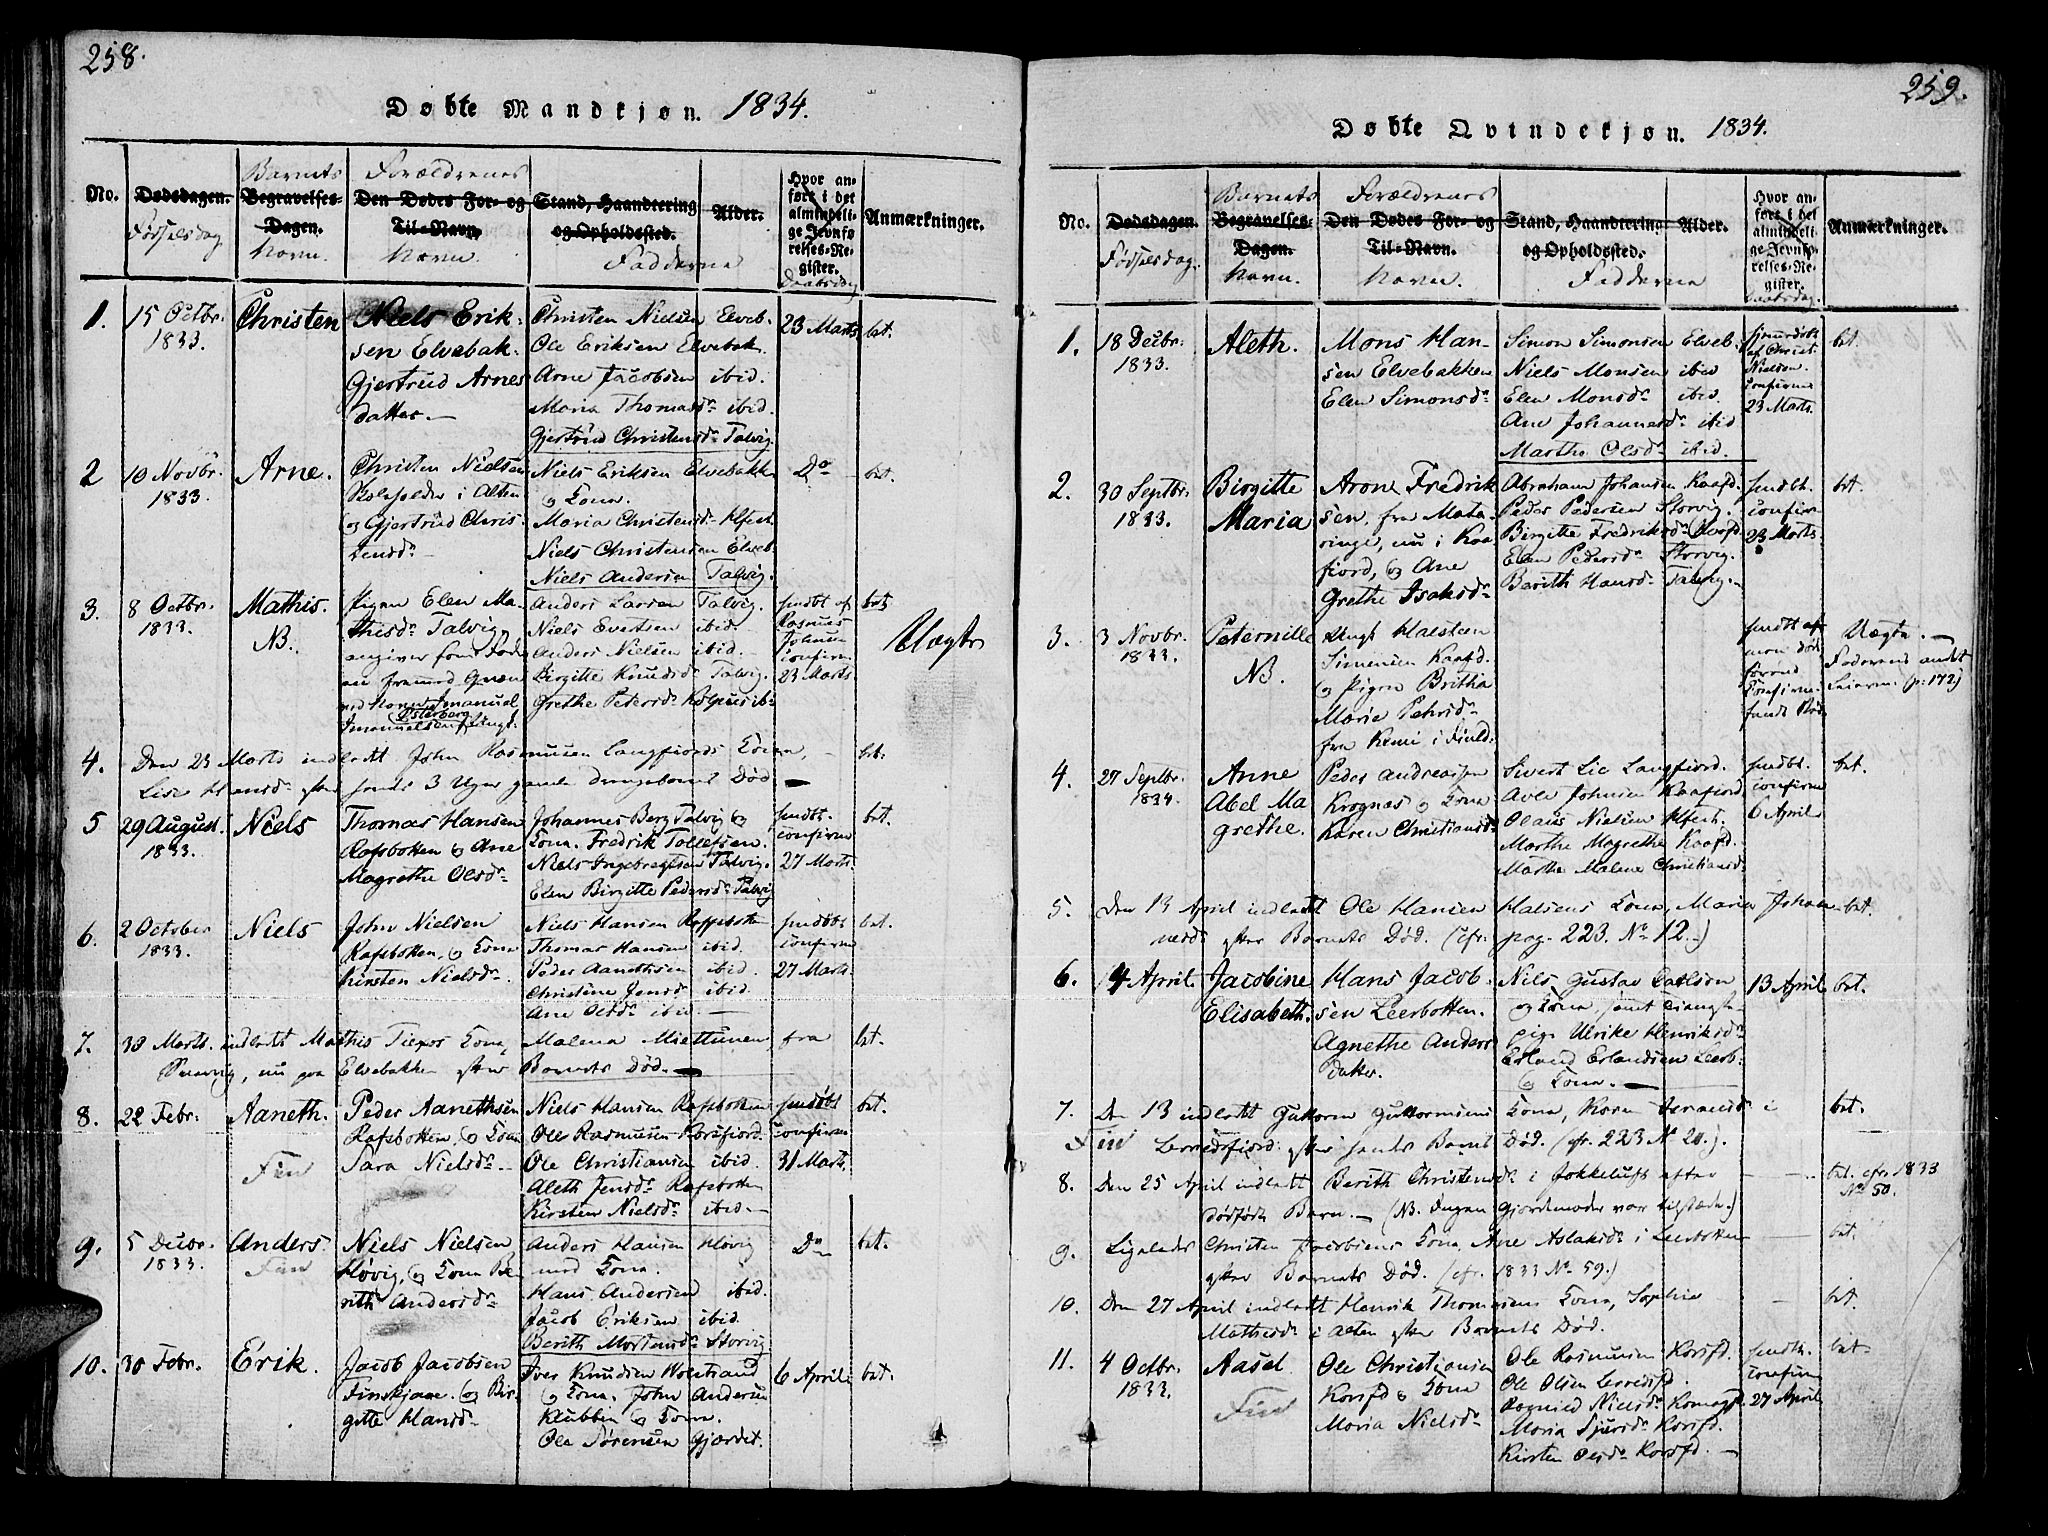 258.
Døbte Mandkjøn. 1834.
No.
Dødsdagen.
Fødselsdag
Barnets
Begravelses-
Dagen.
Navn.
Forældrenes
Den Dødes For- og
Til-Navn
Navn.
Stand, Haandtering
og Opholdssted.
Fadderne
Alder.
Hvor an-
ført i det
almindeli-
ge Jevnfø-
relses-Re-
gister.
Daabsdag
Anmærkninger.
1.
15 Octbr.
1833.
Christen
Niels Erik-
sen Elvebak-
Gjertrud Arnes
datter.
Christen Nielsen Elveb.
Ole Eriksen Elvebak.
Arne Jacobsen ibid.
Maria Thomasdr ibid.
Gjertrud Christensdr Talvig.
23 Marts
bet.
2
10 Novbr.
1833.
Arne.
Christen Nielsen
Skoleholder i Alten
og Gjertrud Chris-
tensdr
Niels Eriksen Elvebakk
og Kona.
Maria Christensdr
Niels Christensen Elveb
Niels Andersen Talvig.
Do
bet.
3.
8 Octbr.
1833.
Mathis.
NB.
Pigen Elen Ma-
thisdr Talvig,
angiver som Fader
en fremmed Qvæn
ved Navn Imanuel
Østerberg
Imanuelsen, Ungk.
Anders Larsen Talvig.
Niels Evertsen ibid.
Anders Nielsen ibid.
Birgitte Knudsdr Talvig.
Grethe Petersdr ib.
hmdbt af
Rasmus
Johnsen
confirm
23 Marts
bet
Uægte
4.
Den 23 Marts indledt John Rasmusen Langfjords Kona,
Lisa Hansdr efter hendes 3 Uger gamle Drengebarns Død
bet.
5
29 August.
1833.
Niels
Thomas Hansen
Rafsbotten og Ane
Magrethe Olsdr
Johannes Berg Talvig og
Kona. Fredrik Tollefsen.
Niels Ingebregtsen Talvig.
Elen Birgitte Pedersdr Talvig
hmdbt.
confirm
27 Marts.
bet.
6.
2 October
1833.
Niels
John Nielsen
Rafsbotten, og Kona
Kirsten Nielsdr.
Niels Hansen Rafsbotten
Thomas Hansen ibid.
Peder Aanethsen ibid.
Christine Jensd ibid.
Ane Olsdr ibid.
hmdøbt
confirm
27 Marts.
bet.
7.
30 Marts. indledt Mathis Kona, Malena Miettunen, fra
nu paa Elvebakken efter Barnets Død.
bet.
8.
22 Febr.
Aaneth.
Fin
Peder Aanethsen
Rafsbotten, og Kona
Sara Nielsdr.
Niels Hansen Rafsbotten
Ole Rasmusen Korsfjord.
Ole Christiansen ibid.
Aleth Jensdr Rafsbotten
Kirsten Nielsdr ibid.
hmdøbt
confirm
31 Marts.
bet.
9.
5 Decbr.
1833.
Anders.
Fin
Niels Nielsen
og Kona Be-
rith Andersdr
Anders Hansen
med Kona.
Hans Andersen ibid.
Jacob Eriksen ibid.
Berith Mortensdr Storvig
Do
bet.
10.
30 Febr.
Erik.
Jacob Jacobsen
Finskjaae. og Bir-
gitte Hansdr
Iver Knudsen
og Kona. John Andersen
Klubbin og Kona.
Ole Sørensen Gjærdet.
6 April.
bet.
259.
Døbte Qvindekjøn. 1834.
No.
Dødsdagen
Fødselsdag.
Barnets
Begravelses-
Dagen.
Navn.
Forældrenes
Den Dødes For- og
Til-Navn.
Navn.
Stand, Haandtering
og Opholdssted.
Fadderne
Alder.
Hvor an-
ført i det
almindeli-
ge Jevnfø-
relses-Re-
gister.
Daabsdag.
Anmærkninger.
1.
18 Decbr.
1833.
Aleth.
Mons Han-
sen Elvebakken
Elen Simonsdr
Simon Simonsen Elveb.
Niels Monsen ibid
Elen Monsdr ibid.
Ane Johannesdr ibid
Marthe Olsdr ibid.
hjmmdøbt
af Christ.
Nielsen.
confirm
23 Marts.
bet.
2.
30 Septbr.
1833.
Birgitte
Maria
Arone Fredrik
sen, fra Mata-
ringi, nu i Kaa-
fjord, og Ane
Grethe Isaksdr
Abraham Johansen Kaafd.
Peder Pedersen Storvig.
Birgitte Fredriksdr Kaafd.
Elen Pedersdr Storvig.
Berith Hansdr Talvig.
hmdbt.
confirm
23 Marts.
bet.
3.
3 Novbr.
1833.
Peternille
NB.
Ungk Halsteen
Simensen Kaafd.
og Pigen Britha
Maria Petersdr
fra Kemi i Finld.
hmdt af
men død
forend
Confirm.
fandt Sted
Uægte.
Faderens andet
Leierm. (p: 172)
4.
27 Septbr.
1834.
Anne
Abel Ma
grethe.
Peder Andreassen
Krognæs og Kona
Karen Christiansdr
Sivert Lie Langfjord.
Ole Johnsen Kaafjord,
Olaus Nielsen
Marthe Magrethe Kaafd.
Marthe Malene Christiansd
hmdbt
confirm
6 April
bet.
5.
Den 13 April indledt Ole Hansen Halsens Kona, Maria Johan-
nesd efter Barnets Død. (cfr. pag. 223. No 12.)
bet.
6.
4 April.
Jacobine
Elisabeth.
Hans Jacob-
sen Leerbotten.
Agnethe Anders
datter.
Nils Gustav Carlson
og Kona, samt
pige Ulrike Henriksdr
Erland Erlandsen Leerb.
og Kona.
13 April
bet.
7.
Fin
Den 13 indledt Guttorm Guttormsens Kona, Karen i
Lerredsfjord. efter hendes Barns Død. (cfr. 223 No 20.).
bet.
8.
Den 25 April indledt Berith Christensdr i Jokkeluft efter
dødfødt Barn. (NB. Ingen Gjordemoder var tilstæde.)
bet. cfr. 1833
No 50.
9.
Ligeledes Christen Jacobsens Kona, Ane Aslaksdr i Leerbotten
efter Barnets Død. (cfr. 1833 No 59.)
bet.
10.
Den 27 April indledt Henrik Thomasens Kona, Sophia
Mathisdr i Alten efter Barnets Død.
bet.
11.
4 Octbr.
1833.
Aasel
Fin
Ole Christiansen
Korsfd og Kona
Maria Nielsdr
Ole Rasmusen Korsfd.
Ole Olsen Lerredsfd.
Ragnild Nielsdr Komagfd.
Maria Sjursdr Korsfd.
Kirsten Olsdr Korsfd.
hmdbt.
confirm
27 April
bet.